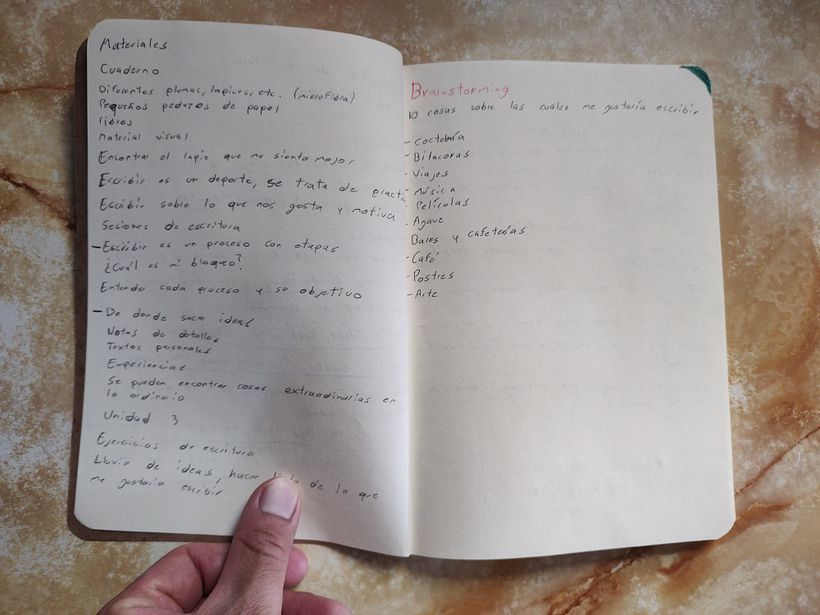 Materiales
Cuaderno
Diferentes plumas, lapices, etc. (microFibra)
Pequeños pedazos de papel
libros
Material visual
Encontrar el lapiz que me sienta mejor
Escribir es un deporte, se trata de practi
Escribir sobre lo que nos gusta y motiva
Sesiones de escritura
-Escribir es un proceso con etapas
¿Cuál es mi bloqueo?
Entender cada proceso y su objetivo
-De donde sacar ideas
Notas de detalles
Textos personales
Experiencias
Se pueden encontrar cosas extraodinarias en
lo ordinario
Unidad 3
Ejercicios de escritura
Lluvia de ideas, hacer de lo que
me gustaria escribir
Brainstorming
10 cosas sobre las cuales me gustaría escribir
- Coctelería
- Bitacoras
- Viajes
- Música
- Películas
- Agave
- Bares y cafeterías
- Café
- Postres
- Arte